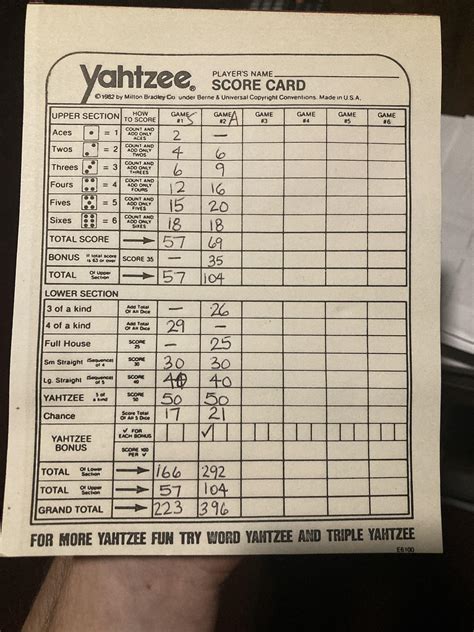 Yahtzee® PLAYER'S NAME
SCORE CARD
©1982 by Milton Bradley Co. under Berne & Universal Copyright Conventions. Made in U.S.A.
UPPER SECTION HOW TO SCORE GAME #1 S GAME #2 A GAME #3 GAME #4 GAME #5 GAME #6
Aces = 1 COUNT AND ADD ONLY ACES 2 —
Twos = 2 COUNT AND ADD ONLY TWOS 4 6
Threes = 3 COUNT AND ADD ONLY THREES 6 9
Fours = 4 COUNT AND ADD ONLY FOURS 12 16
Fives = 5 COUNT AND ADD ONLY FIVES 15 20
Sixes = 6 COUNT AND ADD ONLY SIXES 18 18
TOTAL SCORE 57 69
BONUS If total score is 63 or over SCORE 35 — 35
TOTAL Of Upper Section 57 104
LOWER SECTION
3 of a kind Add Total Of All Dice — 26
4 of a kind Add Total Of All Dice 29 —
Full House SCORE 25 — 25
Sm Straight (Sequence of 4) SCORE 30 30 30
Lg. Straight (Sequence of 5) SCORE 40 40 40
YAHTZEE 5 of a kind SCORE 50 50 50
Chance Score Total Of All 5 Dice 17 21
YAHTZEE BONUS ✓ FOR EACH BONUS ✓
SCORE 100 PER ✓
TOTAL Of Lower Section 166 292
TOTAL Of Upper Section 57 104
GRAND TOTAL 223 396
FOR MORE YAHTZEE FUN TRY WORD YAHTZEE AND TRIPLE YAHTZEE
E6100